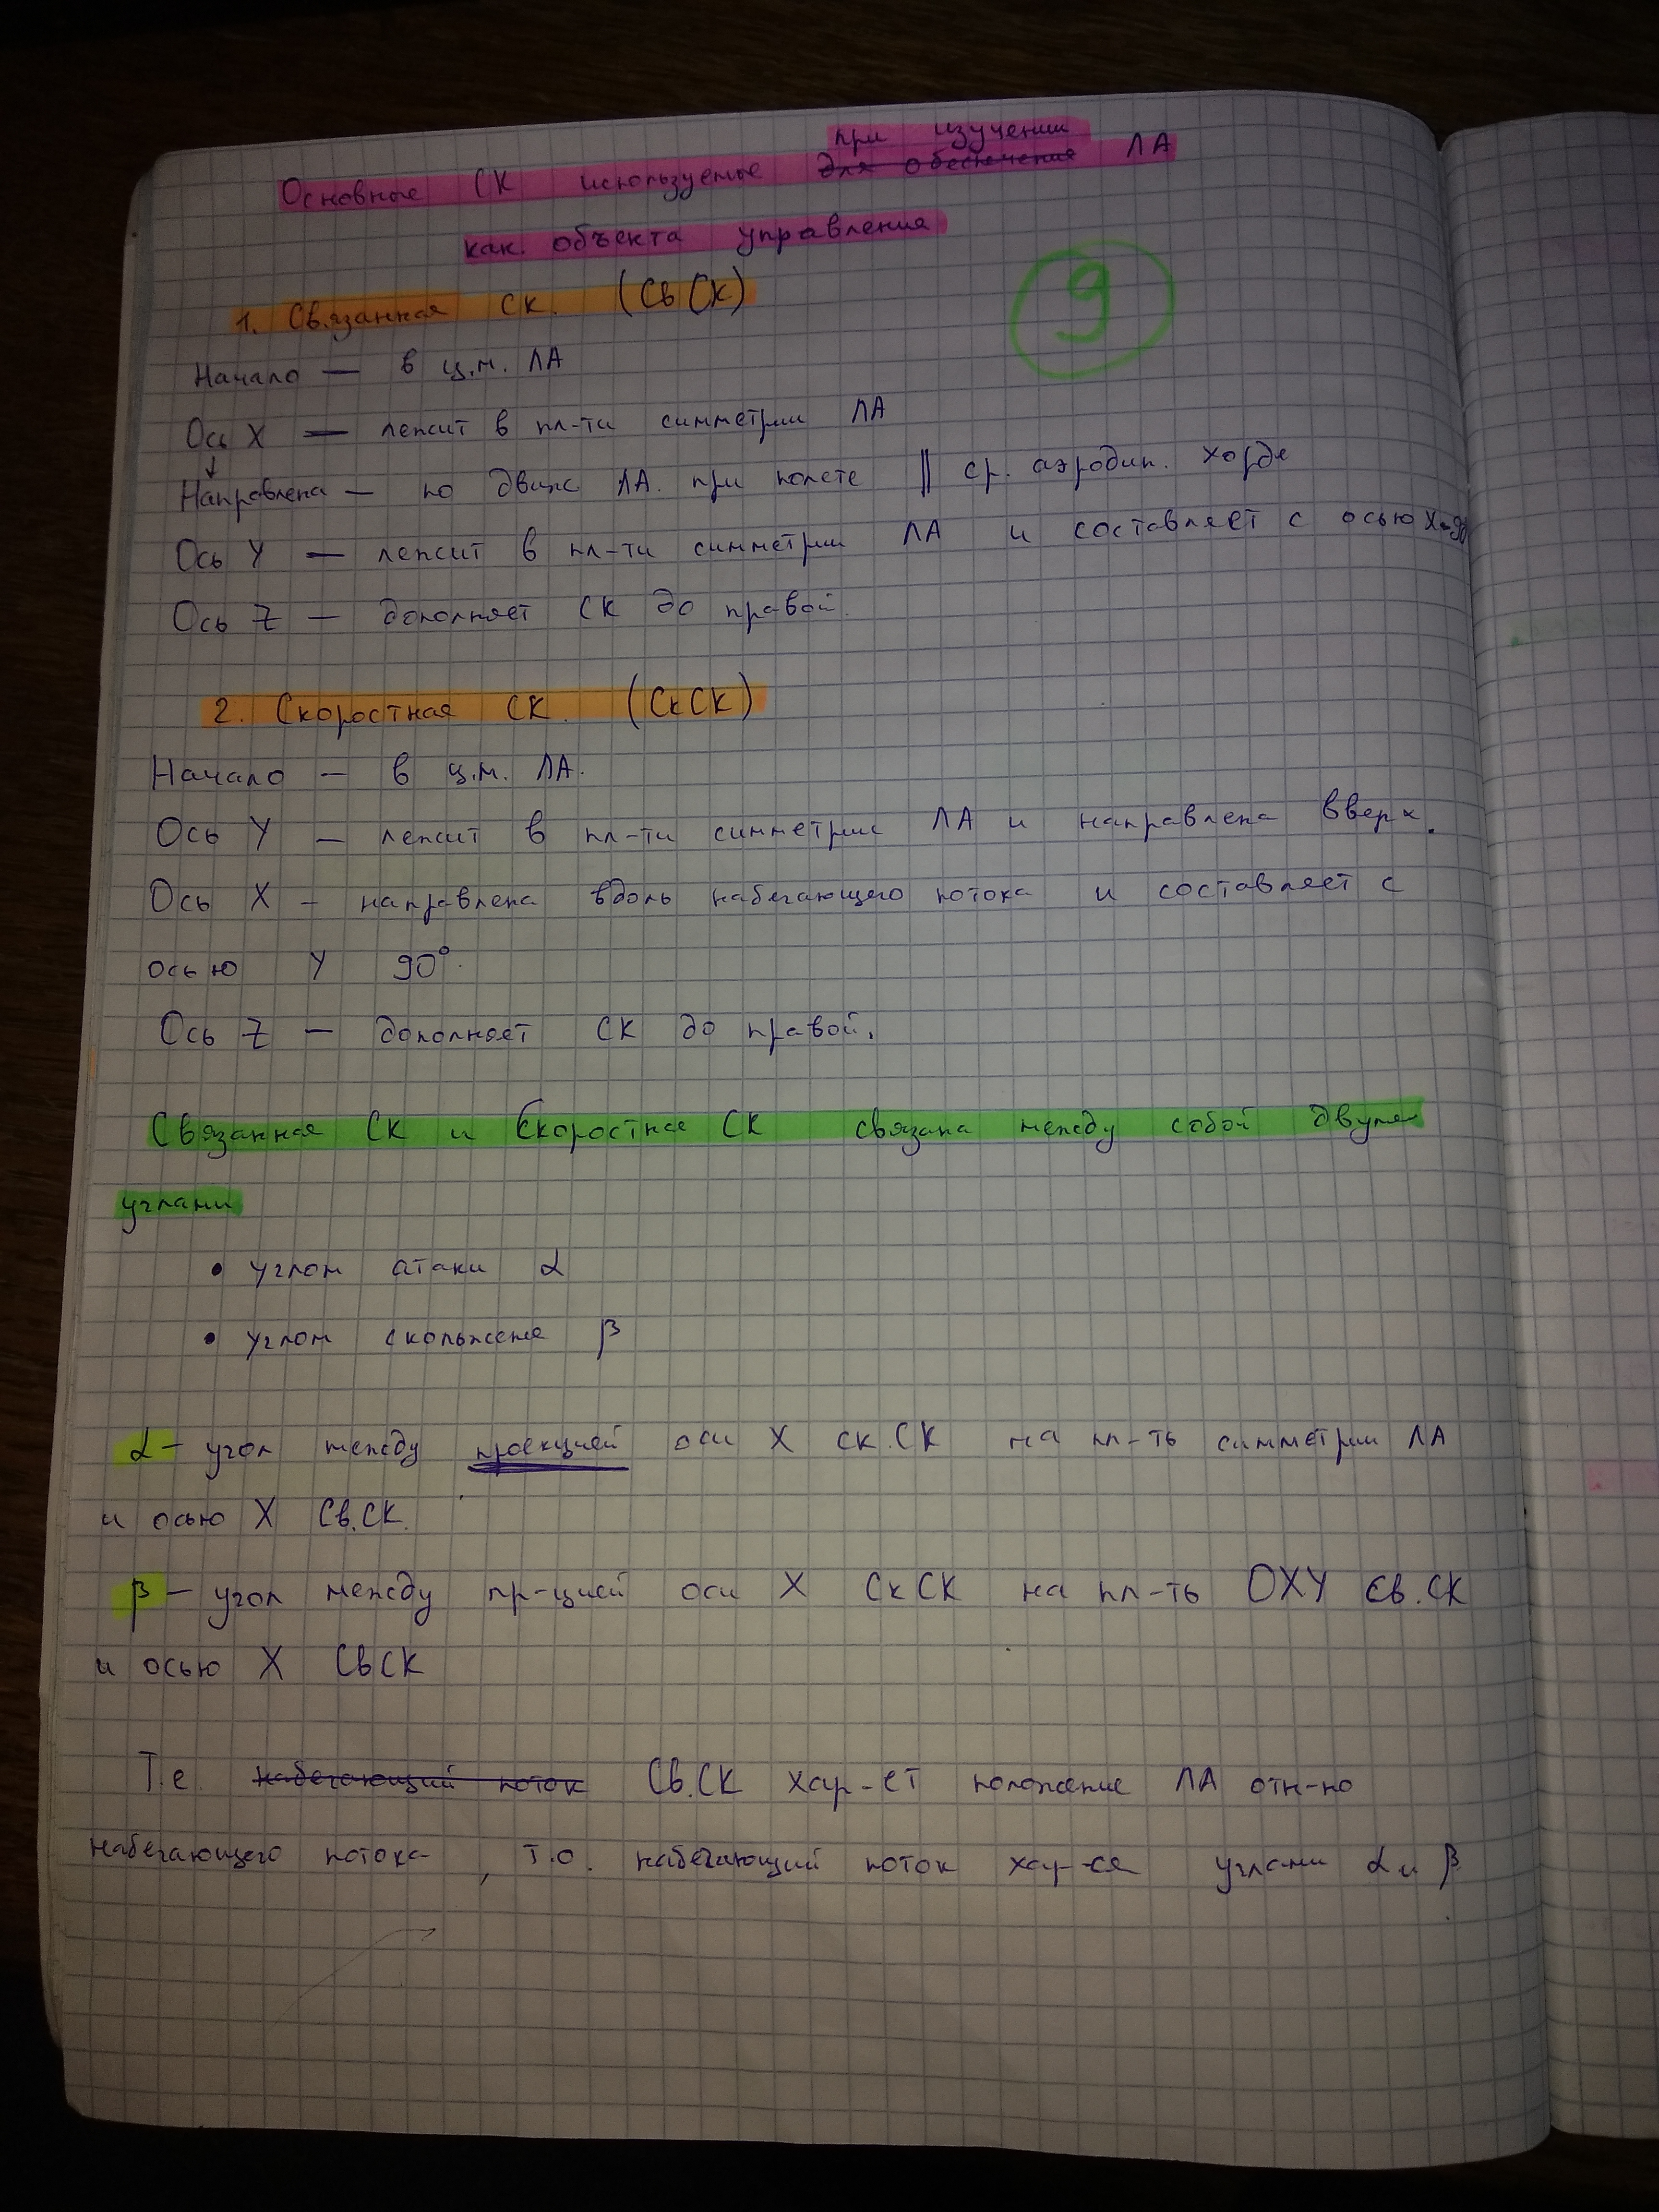 при изучении
Основные СК используемые для обеспечения ЛА
как. объекта управления
9
1. Связанная СК. (СвСК)
Начало — в ц.м. ЛА
Ось X — лежит в пл-ти симметрии ЛА
↓
Направлена — по движ ЛА. при полете || ср. аэродин. хорде
Ось Y — лежит в пл-ти симметрии ЛА и составляет с осью X-90
Ось Z — дополняет СК до правой.
2. Скоростная СК. (СкСК)
Начало — в ц.м. ЛА.
Ось Y — лежит в пл-ти симметрии ЛА и направлена вверх.
Ось X — направлена вдоль набегающего потока и составляет с
осью Y 90°.
Ось Z — дополняет СК до правой.
Связанная СК и Скоростная СК связана между собой двумя
углами
• углом атаки α
• углом скольжения β
α — угол между проекцией оси X ск.СК на пл-ть симметрии ЛА
и осью X Св.СК.
β — угол между пр-цией оси X СкСК на пл-ть OXY Св.СК
и осью X СвСК
Т.е. набегающий поток Св.СК хар-ет положение ЛА отн-но
набегающего потока, т.о. набегающий поток хар-ся углами α и β